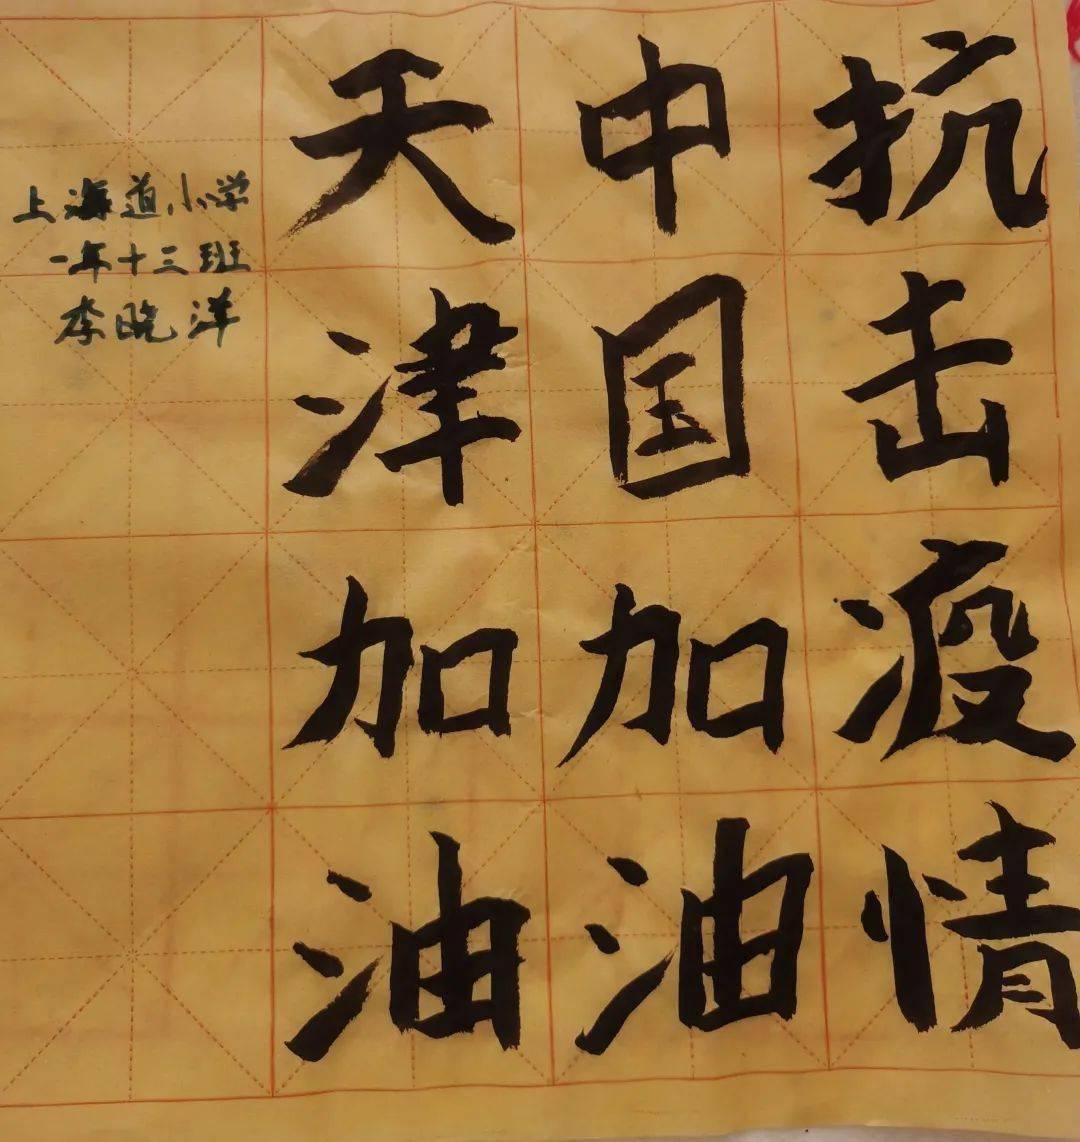 抗击疫情
中国加油
天津加油
上海道小学
一年十三班
李晓洋